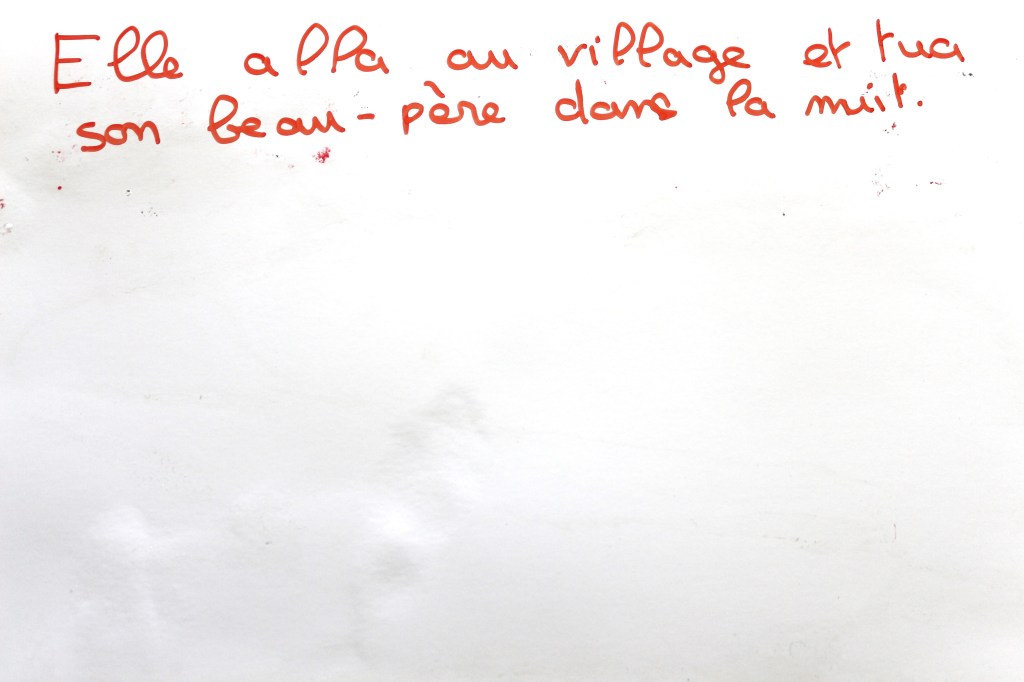 Elle alla au village et tua
son beau-père dans la nuit.